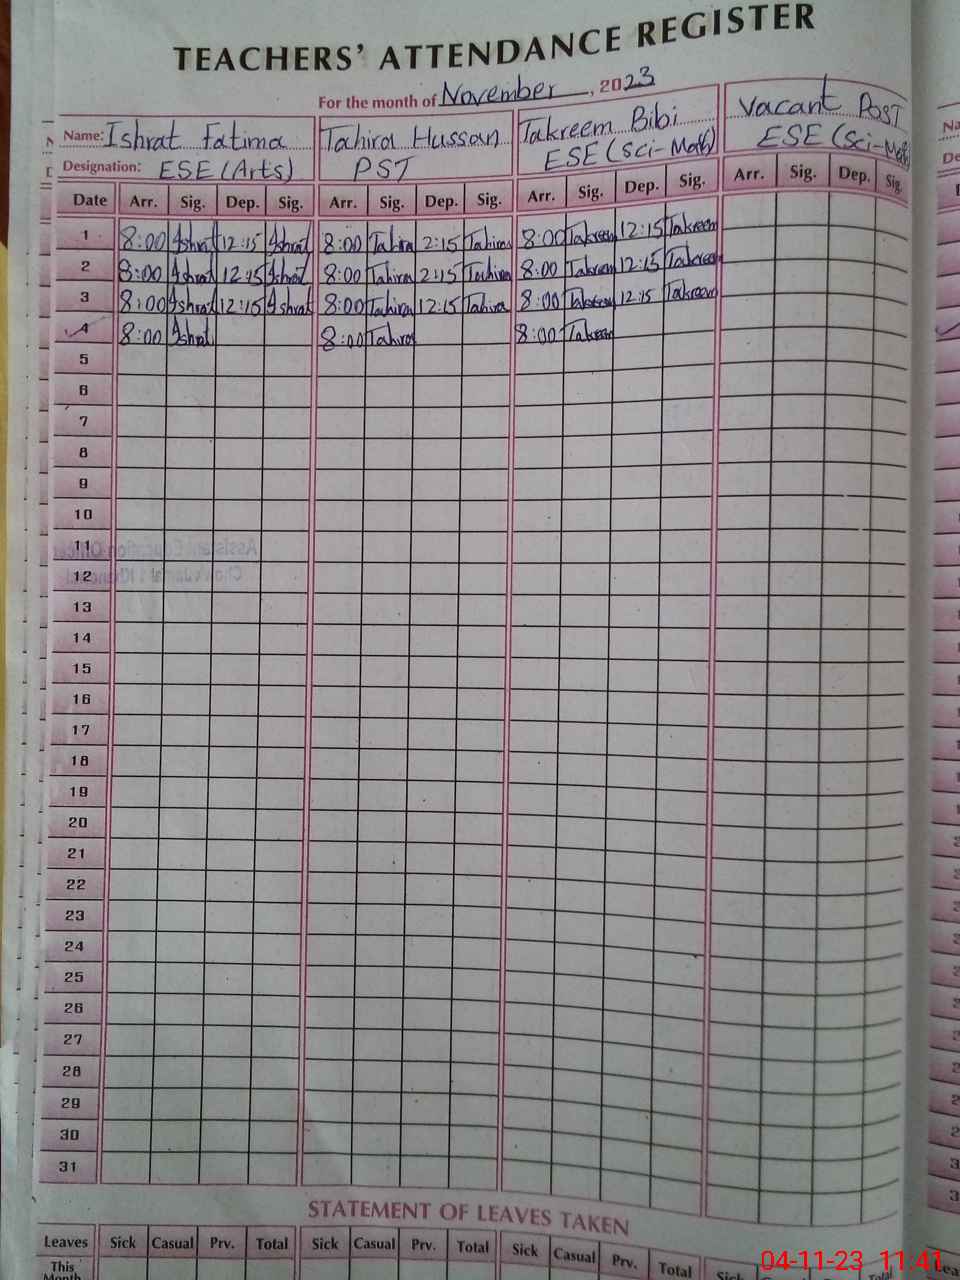 TEACHERS' ATTENDANCE REGISTER
For the month of November, 2023
Name: Ishrat Fatima Tahira Hussan Takreem Bibi Vacant Post
Designation: ESE (Arts) PST ESE (Sci-Math) ESE (Sci-Math)
Date Arr. Sig. Dep. Sig. Arr. Sig. Dep. Sig. Arr. Sig. Dep. Sig. Arr. Sig. Dep. Sig.
1 8:00 Ishrat 12:15 Ishrat 8:00 Tahira 2:15 Tahira 8:00 Takreem 12:15 Takreem
2 8:00 Ishrat 12:15 Ishrat 8:00 Tahira 2:15 Tahira 8:00 Takreem 12:15 Takreem
3 8:00 Ishrat 12:15 Ishrat 8:00 Tahira 12:15 Tahira 8:00 Takreem 12:15 Takreem
4 8:00 Ishrat 8:00 Tahira 8:00 Takreem
5
6
7
8
9
10
11
12
13
14
15
16
17
18
19
20
21
22
23
24
25
26
27
28
29
30
31
STATEMENT OF LEAVES TAKEN
Leaves Sick Casual Prv. Total Sick Casual Prv. Total Sick Casual Prv. Total Sick Total
This
Month
04-11-23 11:41